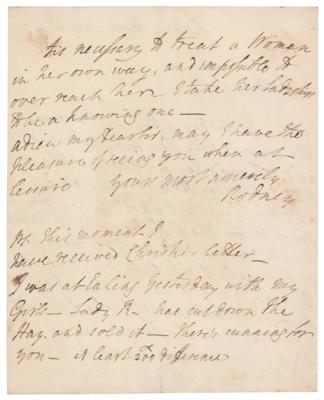 tis necessary to treat a Woman
in her own way, and impossible to
over reach her. I take her Ladyship
to be a knowing one —
adieu my Dear Sir, may I have the
pleasure of seeing you when at
leisure Yours most sincerely
Rodney
Ps. this moment I
have received Christie's letter —
I was at Ealing Yesterday with my
Girls — Lady R— has cut down the
Hay. and sold it — there's cunning for
you — at least 200 difference